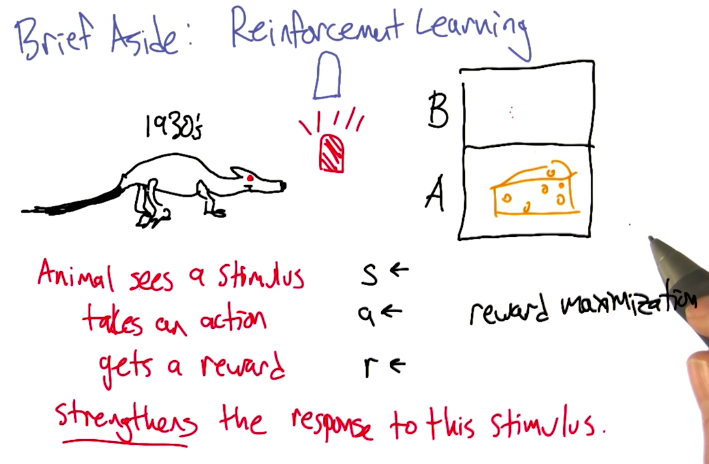 Brief Aside: Reinforcement Learning
1930's
B
A
Animal sees a stimulus s ←
takes an action a ← reward maximization
gets a reward r ←
strengthens the response to this stimulus.